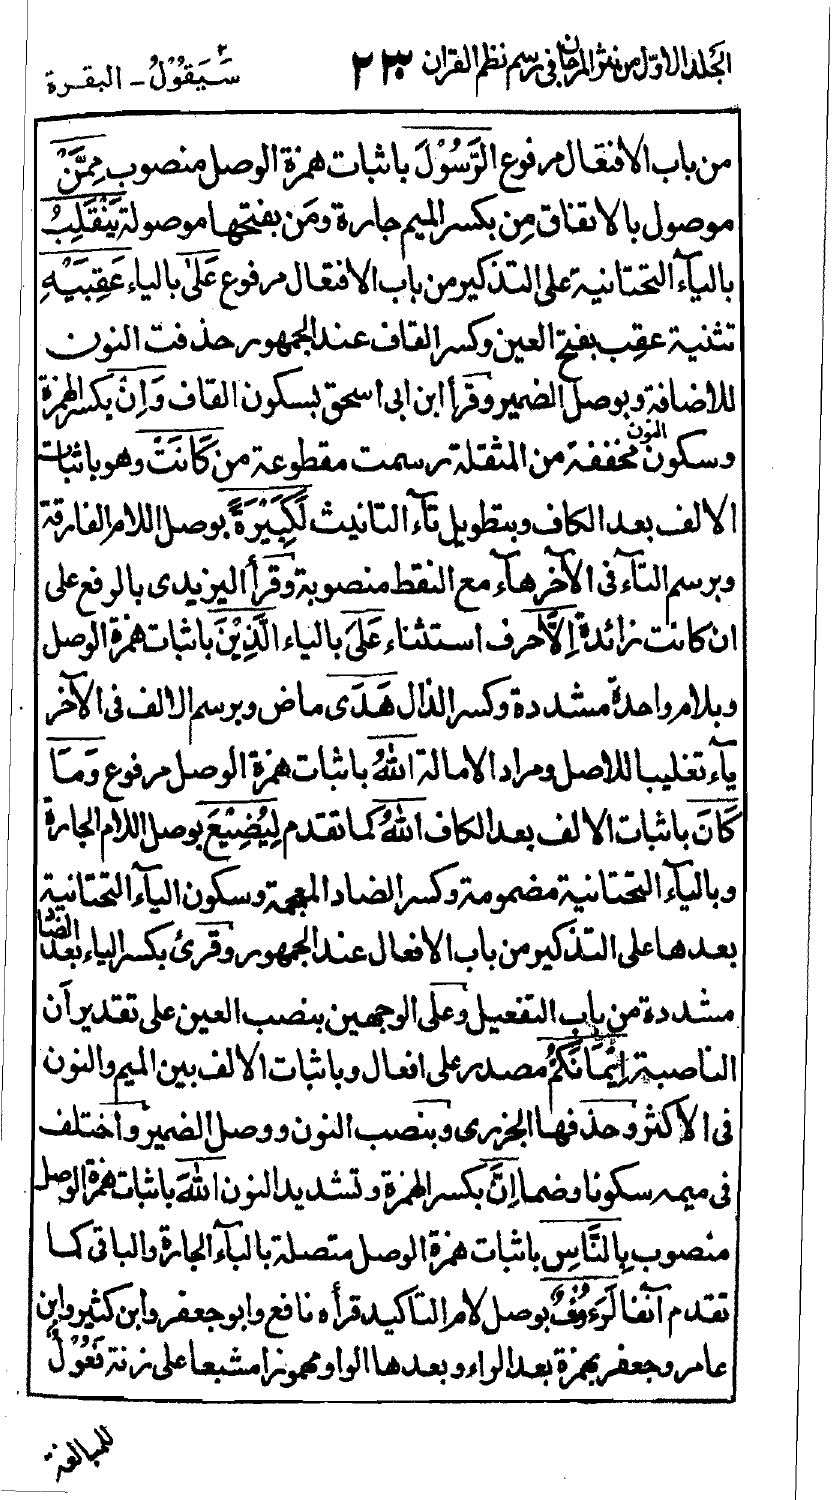 الجلد الاول من نثر المرجان فى رسم نظم القران ٢٣٠ سَيَقُوْلُ ٢ – البقرة
من باب الافتعال مرفوع الرَّسُوْلَ باثبات همزة الوصل منصوب مِمَّنْ
موصول بالاتفاق مِن بكسر الميم جارة ومَن بفتحها موصولة يَنْقَلِبُ
بالياء التحتانية على التذكير من باب الافتعال مرفوع عَلىٰ بالياء عَقِبَيْهِ
تثنية عقِب بفتح العين وكسر القاف عند الجمهور حذفت النون
للاضافة وبوصل الضمير وقرأ ابن ابى اسحق بسكون القاف وَاِنْ بكسر الهمزة
وسكون النون مخففة من المثقلة رسمت مقطوعة من كَانَتْ وهو باثبات
الالف بعد الكاف وبتطويل تآء التانيث لَكَبِيْرَةً بوصل اللام الفارقة
وبرسم التآء فى الآخر هآء مع النقط منصوبة وقرأ اليزيدى بالرفع على
ان كانت زائدة اِلَّا حرف استثناء عَلَى بالياء الَّذِيْنَ باثبات همزة الوصل
وبلام واحدة مشددة وكسر الذال هَدَى ماض وبرسم الالف فى الآخر
يآء تغليبا للاصل ومراد الامالة اللهُ باثبات همزة الوصل مرفوع وَمَا
كَانَ باثبات الالف بعد الكاف اللهُ كما تقدم لِيُضِيْعَ بوصل اللام الجارة
وبالياء التحتانية مضمومة وكسر الضاد المعجمة وسكون الياء التحتانية
بعدها على التذكير من باب الافعال عند الجمهور وقرئ بكسر الياء بعد الضاد
مشددة من باب التفعيل وعلى الوجهين بنصب العين على تقدير ان
الناصبة اِيْمَانَكُمْ مصدر على افعال وباثبات الالف بين الميم والنون
فى الاكثر وحذفها الجزرى وبنصب النون ووصل الضمير واختلف
فى ميمه سكونا وضما اِنَّ بكسر الهمزة وتشديد النون اللهَ باثبات همزة الوصل
منصوب بِالنَّاسِ باثبات همزة الوصل متصلة بالبآء الجارة والباقى كما
تقدم آنفا لَرَءُوْفٌ بوصل لام التاكيد قرأه نافع وابو جعفر وابن كثير وابن
عامر وجعفر بهمزة بعد الراء وبعدها الواو مهموزا مشبعا على زنة فَعُوْلٌ
للمبالغة